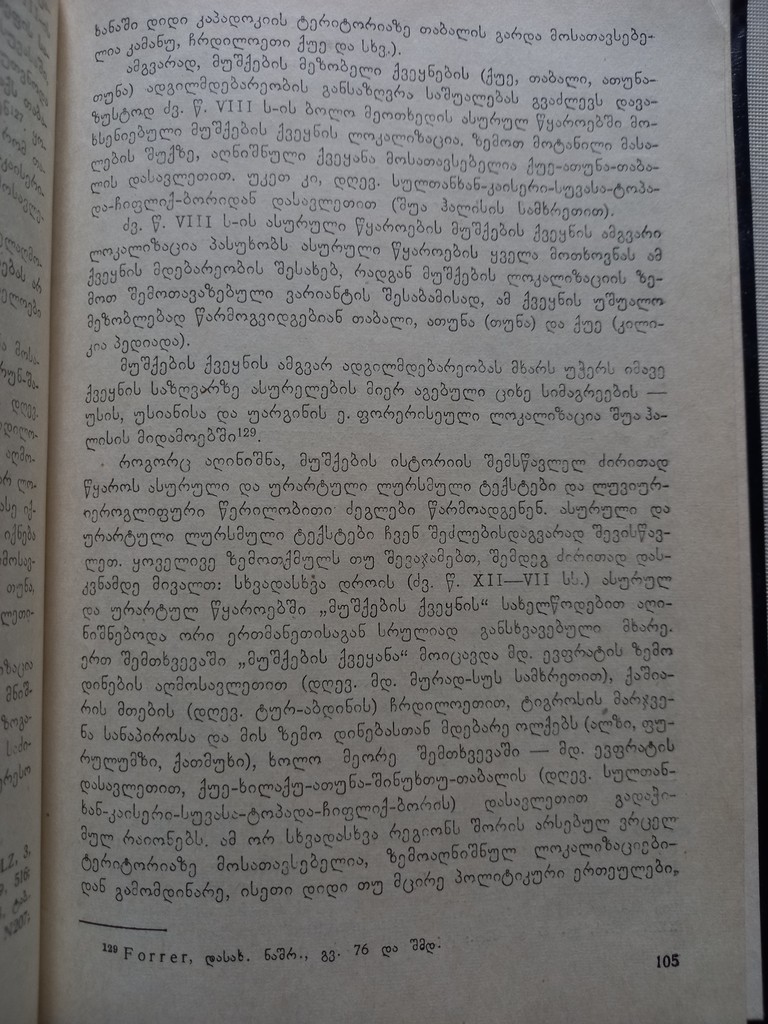 ხანაში დიდი კაპადოკიის ტერიტორიაზე თაბალის გარდა მოსათავსებე-
ლია კამანუ, ჩრდილოეთი ქუე და სხვ.).
ამგვარად, მუშქების მეზობელი ქვეყნების (ქუე, თაბალი, ათუნა-
თუნა) ადგილმდებარეობის განსაზღვრა საშუალებას გვაძლევს დავა-
ზუსტოდ ძვ. წ. VIII ს-ის ბოლო მეოთხედის ასურულ წყაროებში მო-
ხსენიებული მუშქების ქვეყნის ლოკალიზაცია. ზემოთ მოტანილი მასა-
ლების შუქზე, აღნიშნული ქვეყანა მოსათავსებელია ქუე-ათუნა-თაბა-
ლის დასავლეთით. უკეთ კი, დღევ. სულთანხან-კაისერი-სუვასა-ტოპა-
და-ჩიფლიქ-ბორიდან დასავლეთით (შუა ჰალისის სამხრეთით).
ძვ. წ. VIII ს-ის ასურული წყაროების მუშქების ქვეყნის ამგვარი
ლოკალიზაცია პასუხობს ასურული წყაროების ყველა მოთხოვნას ამ
ქვეყნის მდებარეობის შესახებ, რადგან მუშქების ლოკალიზაციის ზე-
მოთ შემოთავაზებული ვარიანტის შესაბამისად, ამ ქვეყნის უშუალო
მეზობლებად წარმოგვიდგებიან თაბალი, ათუნა (თუნა) და ქუე (კილი-
კია პედიადა).
მუშქების ქვეყნის ამგვარ ადგილმდებარეობას მხარს უჭერს იმავე
ქვეყნის საზღვარზე ასურელების მიერ აგებული ციხე სიმაგრეების —
უსის, უსიანისა და უარგინის ე. ფორერისეული ლოკალიზაცია შუა ჰა-
ლისის მიდამოებში¹²⁹.
როგორც აღინიშნა, მუშქების ისტორიის შემსწავლელ ძირითად
წყაროს ასურული და ურარტული ლურსმული ტექსტები და ლუვიურ-
იეროგლიფური წერილობითი ძეგლები წარმოადგენენ. ასურული და
ურარტული ლურსმული ტექსტები ჩვენ შეძლებისდაგვარად შევისწავ-
ლეთ. ყოველივე ზემოთქმულს თუ შევაჯამებთ, შემდეგ ძირითად დას-
კვნამდე მივალთ: სხვადასხვა დროის (ძვ. წ. XII—VII სს.) ასურულ
და ურარტულ წყაროებში „მუშქების ქვეყნის“ სახელწოდებით აღი-
ნიშნებოდა ორი ერთმანეთისაგან სრულიად განსხვავებული მხარე.
ერთ შემთხვევაში „მუშქების ქვეყანა“ მოიცავდა მდ. ევფრატის ზემო
დინების აღმოსავლეთით (დღევ. მდ. მურად-სუს სამხრეთით), ქაშია-
რის მთების (დღევ. ტურ-აბდინის) ჩრდილოეთით, ტიგროსის მარჯვე-
ნა სანაპიროსა და მის ზემო დინებასთან მდებარე ოლქებს (ალზი, ფუ-
რულუმზი, ქათმუხი), ხოლო მეორე შემთხვევაში — მდ. ევფრატის
დასავლეთით, ქუე-ხილაქუ-ათუნა-შინუხთუ-თაბალის (დღევ. სულთან-
ხან-კაისერი-სუვასა-ტოპადა-ჩიფლიქ-ბორის) დასავლეთით გადაჭი-
მულ რაიონებს. ამ ორ სხვადასხვა რეგიონს შორის არსებულ ვრცელ
ტერიტორიაზე მოსათავსებელია, ზემოაღნიშნულ ლოკალიზაციები-
დან გამომდინარე, ისეთი დიდი თუ მცირე პოლიტიკური ერთეულები,
¹²⁹ Forrer, დასახ. ნაშრ., გვ. 76 და შმდ.
105